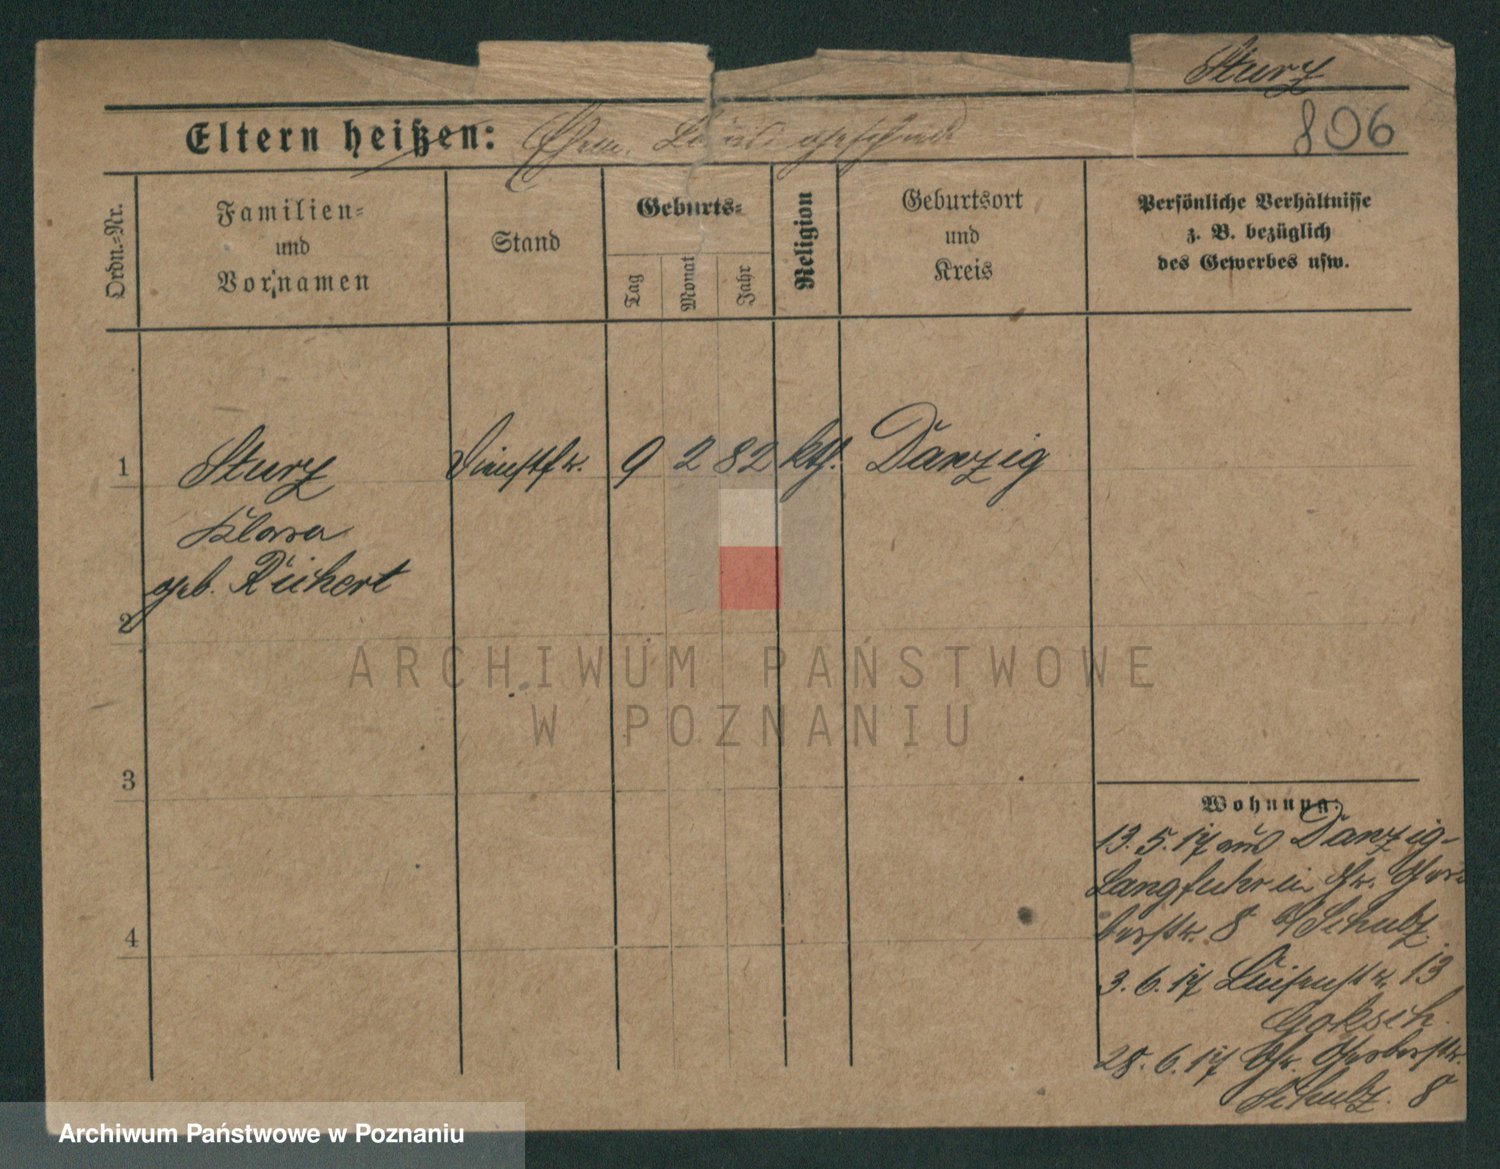 Sturz
Eltern heißen:
806
Ordn.-Nr.
Familien-
und
Vornamen
Stand
Geburts-
Tag
Monat
Jahr
Religion
Geburtsort
und
Kreis
Persönliche Verhältnisse
z. B. bezüglich
des Gewerbes usw.
1 Sturz 9 2 82 kth. Danzig
Klara
geb. Reichert
2
3
4
Wohnung:
13.5.17 aus Danzig-
Langfuhr in Gr. Ger-
berstr. 8 b/Schulz
3.6.17 Luisenstr. 13
28.6.17 Gr. Gerberstr.
Schulz. 8
ARCHIWUM PAŃSTWOWE
W POZNANIU
Archiwum Państwowe w Poznaniu